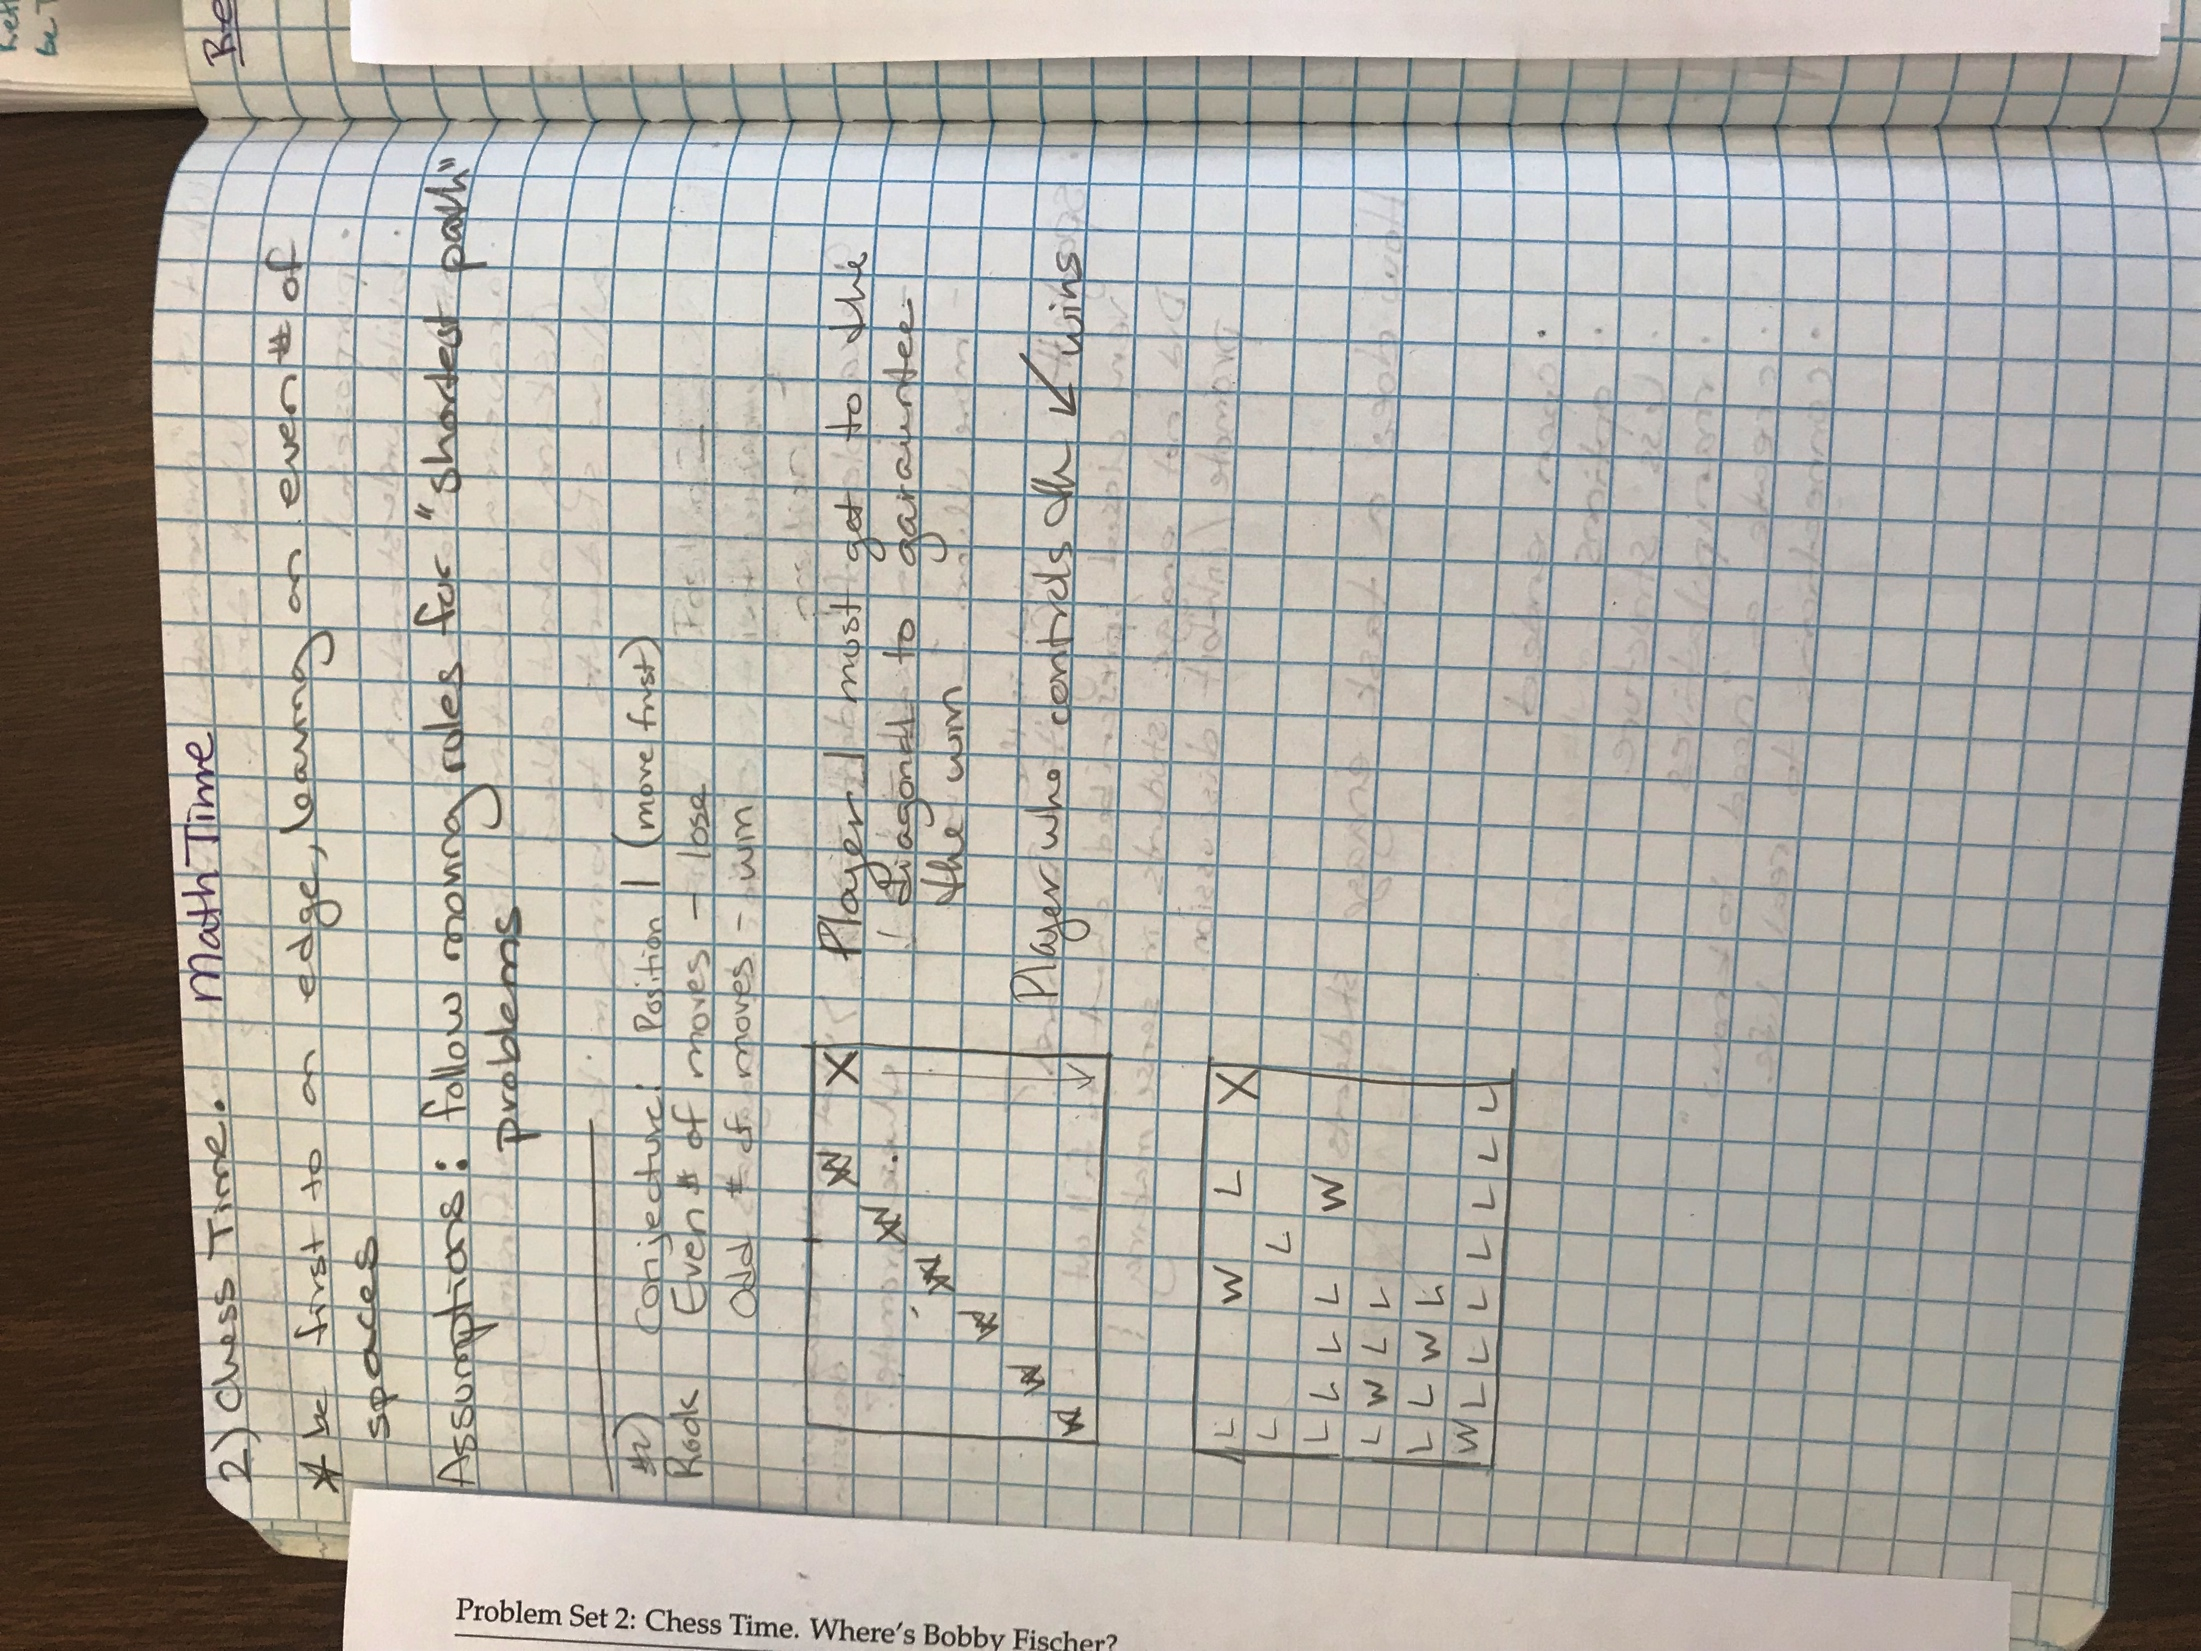 Math Time
2) Chess Time.
* be first to an edge, leaving an even # of
spaces
Assumptions: follow moving rules for "shortest path"
problems
#1)
Rook
Conjecture: Position 1 (move first)
Even # of moves - lose
Odd # of moves - win
X
W
W
W
W
W
W
Player 1 must get to the
diagonal to garauntee
the win
Player who controls the ↙ wins
L W L X
L L
L L L L W
L W L L
L L W L
W L L L L L L L
Problem Set 2: Chess Time. Where's Bobby Fischer?